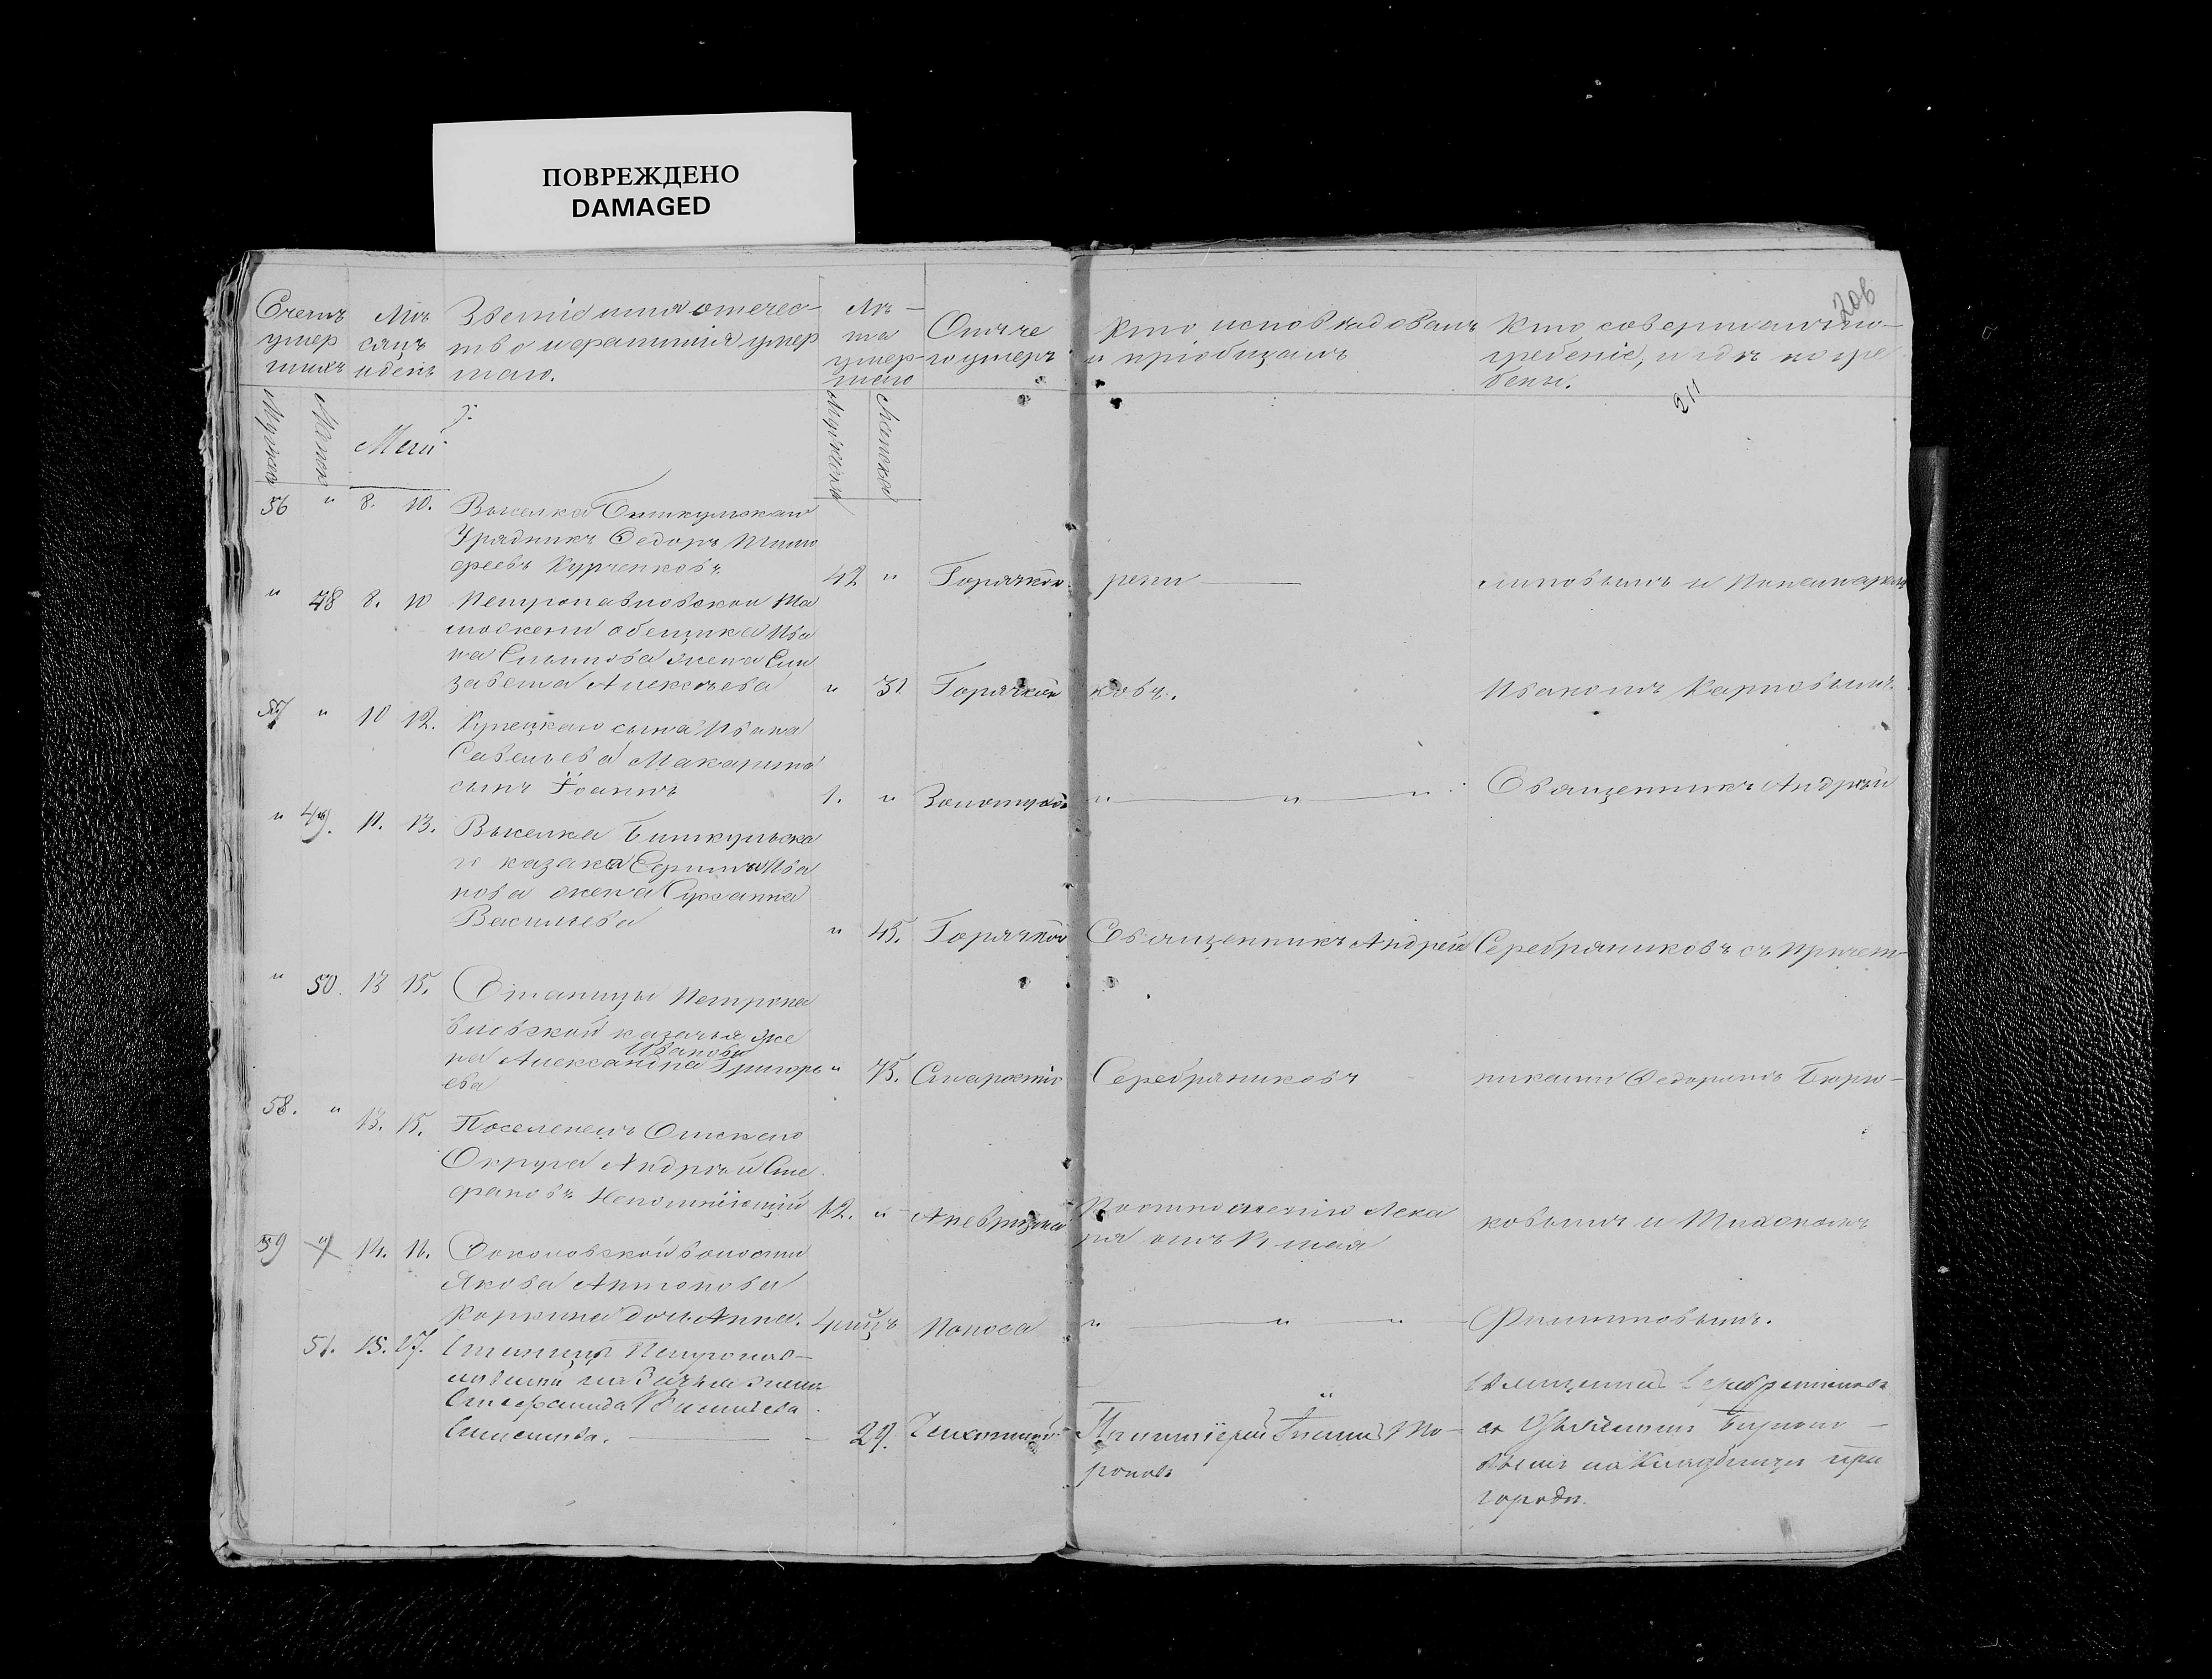 ПОВРЕЖДЕНО
DAMAGED
206
Счетъ умершихъ
Мѣсяцъ и день
Званіе имя отечество и фамилія умершаго.
Лѣта умершаго
Отъ чего умеръ
Кто исповѣдовалъ и пріобщалъ
Кто совершалъ погребеніе, и гдѣ погребены.
211
Мужска
Женск
Май
Мужска
Женска
56 " 8. 10. Выселка Биткульскаго
Урядникъ Федоръ Тимо
феевъ Курченковъ 42 " Горячкою
рыни
липовымъ и Пономаремъ
" 48 8. 10 Петропавловской Та
можени обещика Ива
на жена Ели
завета Алексѣева " 31 Горячкою
ковъ.
Иваномъ Карповымъ.
57 " 10 12. Купецкаго сына Ивана
Савельева Макарина
сынъ Іоаннъ 1. " Золотухой
" " "
Священникъ Андрѣй
" 49. 11. 13. Выселка Биткульска
го казака Ива
нова жена Сусанна
Васильева " 45. Горячкой
Священникъ Андрей
Серебряниковъ съ причет-
" 50. 13 15. Станицы Петропа
вловской казачья же
на Александра Иванова Григорь
ева " 75. Старостію
Серебряниковъ
никами Федоромъ Бирю-
58. " 13. 15. Поселенецъ Омскаго
Округа Андрѣй Сте
фановъ Непомнющій 62. "
По отношенію Лека
ря отъ 14 мая
ковымъ и Тихономъ
59 " 14. 16. Соколовской волости
Якова Антонова
Коркина дочь Анна. 4 мѣцъ Поноса
" " "
Филиповымъ.
51. 15. 17. Станицы Петропав-
ловской казачья жена
Стефанида Васильева
29. Чехоткой
Протоіерей
Серебряниковъ
съ Бирюко-
вымъ на Кладбище при
городе.